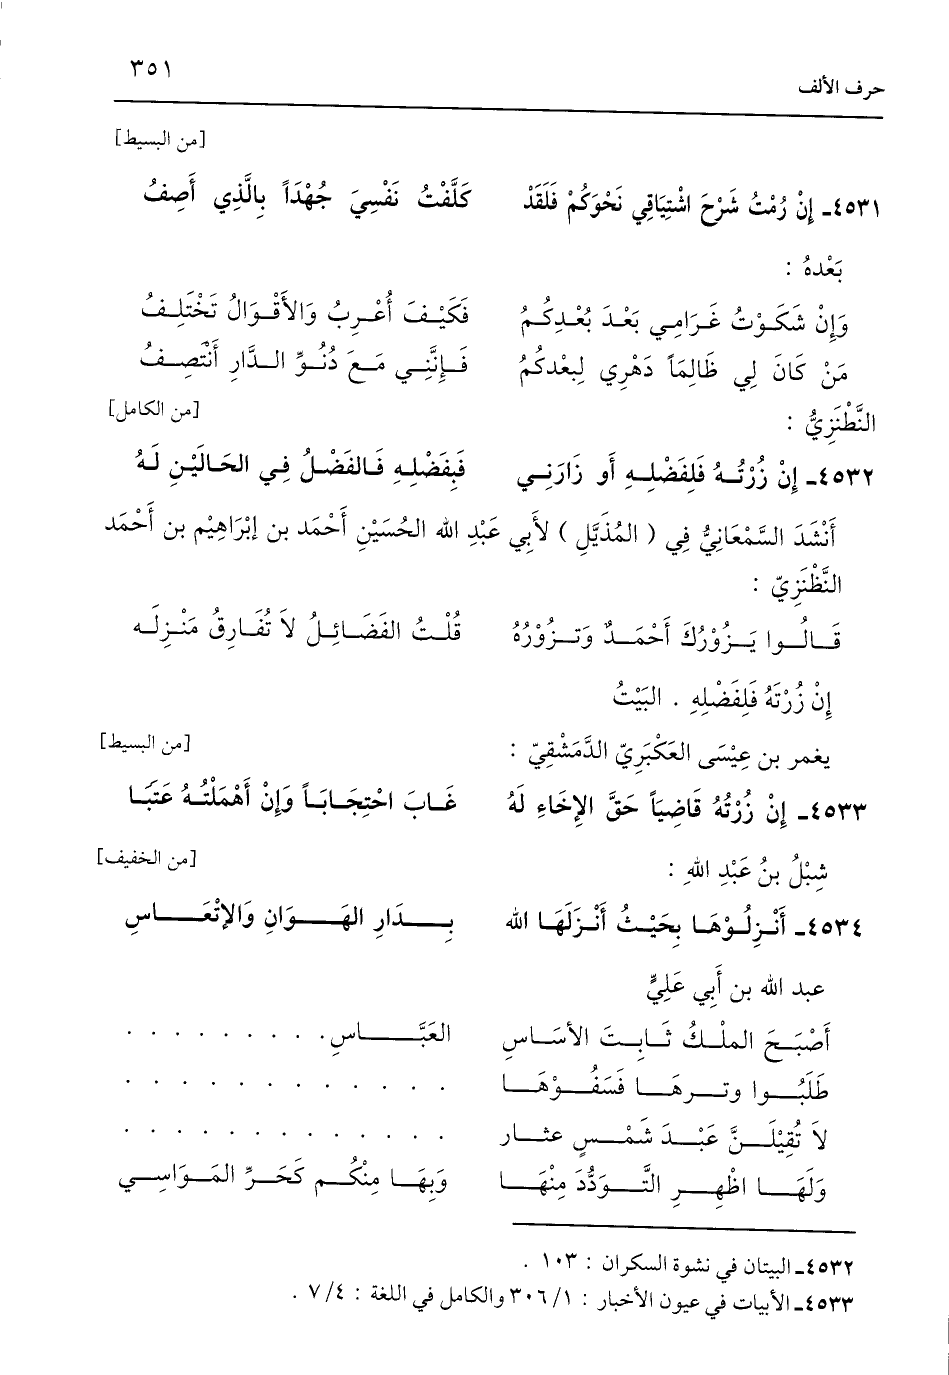 حرف الألف ٣٥١
[من البسيط]
٤٥٣١ـ إِنْ رُمْتُ شَرْحَ اشْتِيَاقِي نَحْوَكُمْ فَلَقَدْ كَلَّفْتُ نَفْسِيَ جُهْدَاً بِالَّذِي أَصِفُ
بَعْدهُ :
وَإِنْ شَكَوْتُ غَرَامِي بَعْدَ بُعْدِكُمُ فَكَيْفَ أُعْرِبُ وَالأَقْوَالُ تَخْتَلِفُ
مَنْ كَانَ لِي ظَالِمَاً دَهْرِي لِبعْدكُمُ فَإِنَّنِي مَعَ دُنُوِّ الدَّارِ أَنْتَصِفُ
النَّطْنَزِيُّ : [من الكامل]
٤٥٣٢ـ إِنْ زُرْتُهُ فَلِفَضْلِهِ أو زَارَنِي فَبِفَضْلِهِ فَالفَضْلُ فِي الحَالَيْنِ لَهُ
أَنْشَدَ السَّمْعَانِيُّ فِي ( المُذَيَّلِ ) لأَبِي عَبْدِ الله الحُسَيْنِ أَحْمَد بن إبْرَاهِيْم بن أَحْمَد
النَّظْنَزِيّ :
قَالُوا يَزُوْرُكَ أَحْمَدٌ وَتزُوْرُهُ قُلْتُ الفَضَائِلُ لاَ تُفَارِقُ مَنْزِلَه
إِنْ زُرْتَهُ فَلِفَضْلِهِ . البَيْتُ
يغمر بن عِيْسَى العَكْبَرِيّ الدَّمَشْقِيّ : [من البسيط]
٤٥٣٣ـ إِنْ زُرْتُهُ قَاضِيَاً حَقَّ الإِخَاءِ لَهُ غَابَ احْتِجَابَاً وَإِنْ أَهْمَلْتُهُ عَتَبَا
شِبْلُ بنُ عَبْدِ اللهِ : [من الخفيف]
٤٥٣٤ـ أَنْزِلُوْهَا بِحَيْثُ أَنْزَلَهَا الله بِدَارِ الهَوَانِ وَالإِتْعَاسِ
عبد الله بن أَبِي عَلِيٍّ
أَصْبَحَ الملْكُ ثَابِتَ الأسَاسِ العَبَّاسِ. . . . . . . . .
طَلَبُوا وترهَا فَسَفُوْهَا . . . . . . . . . . . . .
لاَ تُقِيْلَنَّ عَبْدَ شَمْسٍ عثار . . . . . . . . . . . . .
وَلَهَا اظْهِرِ التَّوَدُّدَ مِنْهَا وَبِهَا مِنْكُم كَحَرِّ المَوَاسِي
٤٥٣٢ـ البيتان في نشوة السكران : ١٠٣ .
٤٥٣٣ـ الأبيات في عيون الأخبار : ١/ ٣٠٦ والكامل في اللغة : ٤/ ٧ .